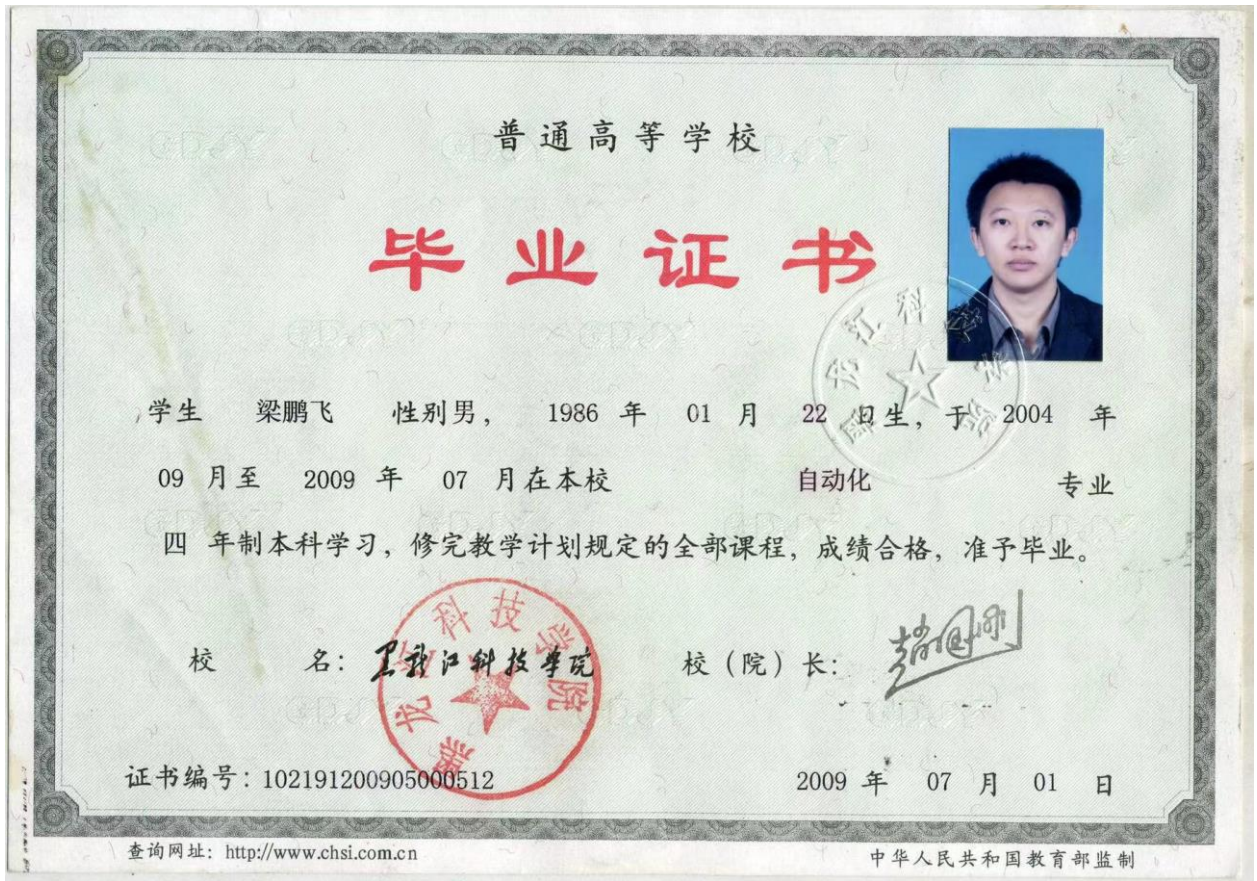 普通高等学校
毕业证书
学生 梁鹏飞 性别男， 1986 年 01 月 22 日生，于 2004 年
09 月至 2009 年 07 月在本校 自动化 专业
四 年制本科学习，修完教学计划规定的全部课程，成绩合格，准予毕业。
黑龙江科技学院
校 名：黑龙江科技学院 校（院）长：赵国刚
黑龙江科技学院
证书编号：102191200905000512 2009 年 07 月 01 日
查询网址：http://www.chsi.com.cn 中华人民共和国教育部监制